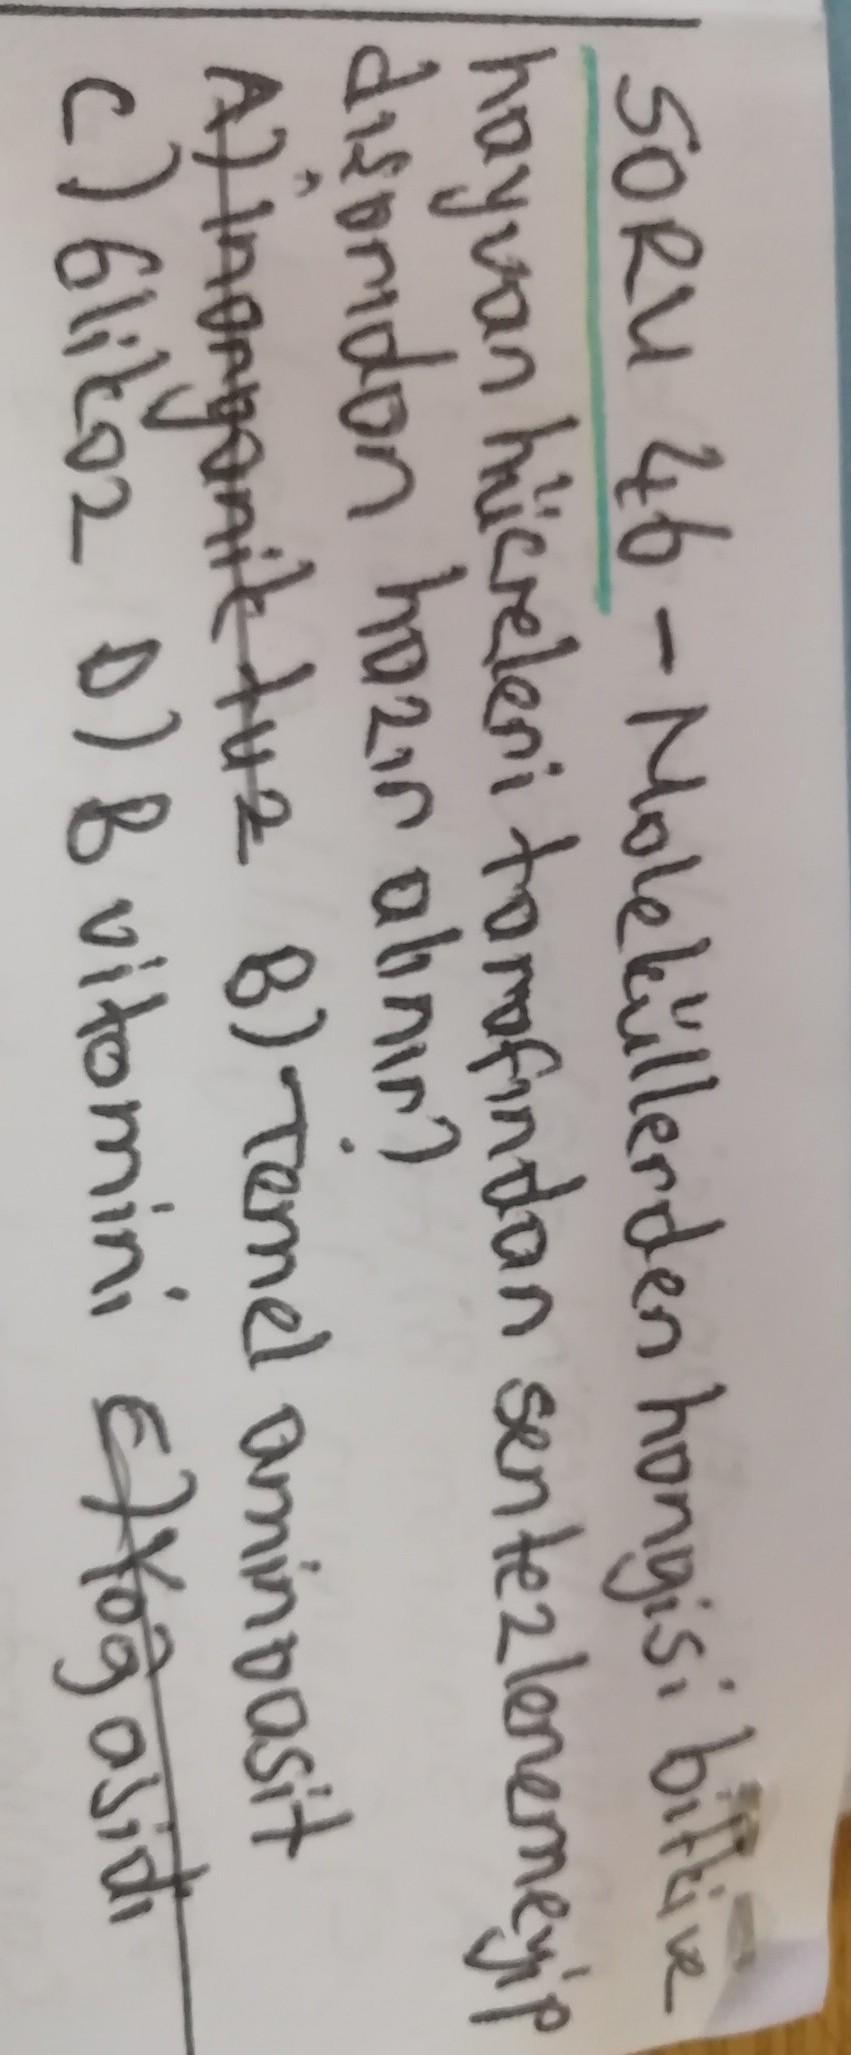 SORU 46 - Moleküllerden hangisi bitki ve
hayvan hücreleri tarafından sentezlenemeyip
dışarıdan hazır alınır?
A) İnorganik tuz B) Temel aminoasit
C) Glikoz D) B vitamini E) Yağ asidi